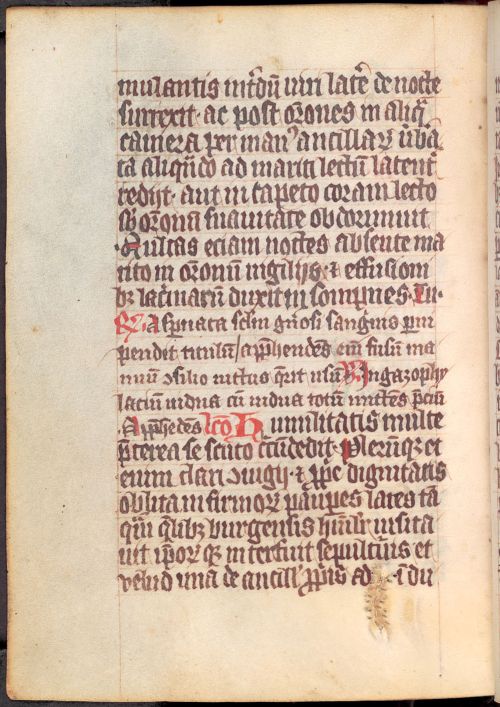 mulantis int͛dū uiri latēr de nocte
surrexit · ac post or̄ones in aliq̄
camera per man⁹ ancillaꝝ ūb̄a
ta aliqn̄do ad mariti lectū latent͛
redijt · aut in tapeto coram lecto
or̄onū suauitate obdormiuit
Multas eciam noctes absente ma
rito in or̄onū uigilijs · ⁊ effusioni
bꝫ lac͛maruū duxit insompnes · Tu ·
℟. Asp͛nata sc̄lm gn̄osi sangīnis p̄m
pendit titulū / app̄hendēs em̄ fusū ma
nuū ɔsilio inn̄tus q̄rit usū ℣ In gazophy
laciū uidua cū uidua totū mittēs p̄ciū
App̄hēdēs lc̄o H umilitatis multe
p̄terea se scuto c̄cūdedit · Pler̄ūqꝫ et
enim clari ɔiugij · ⁊ ꝓp̄e dignitatis
oblita infirmoꝝ paup̄es lares ta
q̄ꝫ q̄libꝫ burgensis hūilr̄ uisita
uit ip̄oꝝ qꝫ interfuit sepult͛is et
velud una de ancill' ꝓp̄io ad īdu